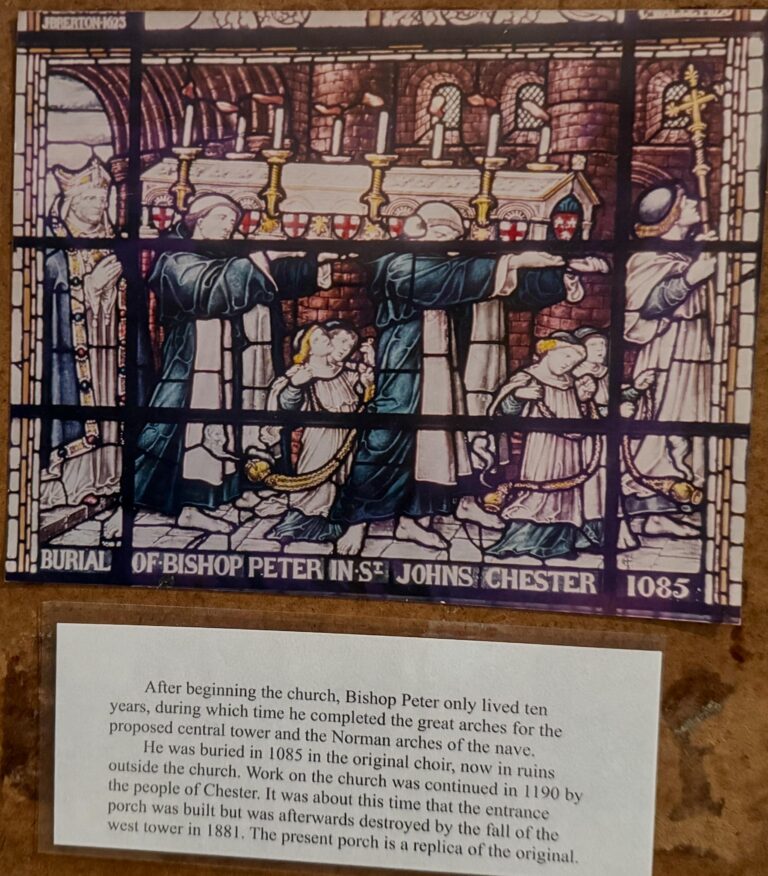 J·BRERTON·1623
BURIAL OF·BISHOP PETER IN·Sᵀ JOHNS CHESTER 1085
After beginning the church, Bishop Peter only lived ten
years, during which time he completed the great arches for the
proposed central tower and the Norman arches of the nave.
He was buried in 1085 in the original choir, now in ruins
outside the church. Work on the church was continued in 1190 by
the people of Chester. It was about this time that the entrance
porch was built but was afterwards destroyed by the fall of the
west tower in 1881. The present porch is a replica of the original.